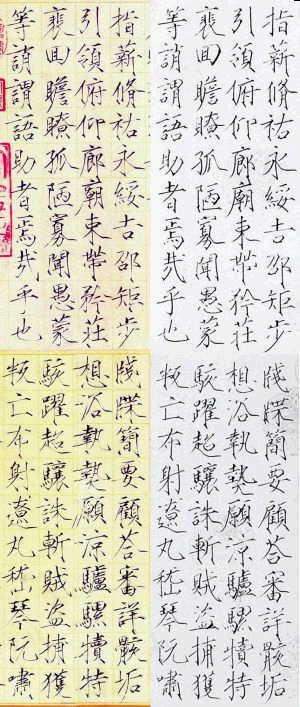 指薪脩祐永綏吉邵矩步
引領俯仰廊廟束帶矜莊
裵回瞻瞭孤陋寡聞愚蒙
等誚謂語助者焉哉乎也
指薪脩祐永綏吉邵矩步
引領俯仰廊廟束帶矜莊
裵回瞻瞭孤陋寡聞愚蒙
等誚謂語助者焉哉乎也
牋牒簡要顧荅審詳骸垢
想浴執熱願涼驢騾犢特
駭躍超驤誅斬賊盜捕獲
叛亡布射遼丸嵇琴阮嘯
牋牒簡要顧荅審詳骸垢
想浴執熱願涼驢騾犢特
駭躍超驤誅斬賊盜捕獲
叛亡布射遼丸嵇琴阮嘯